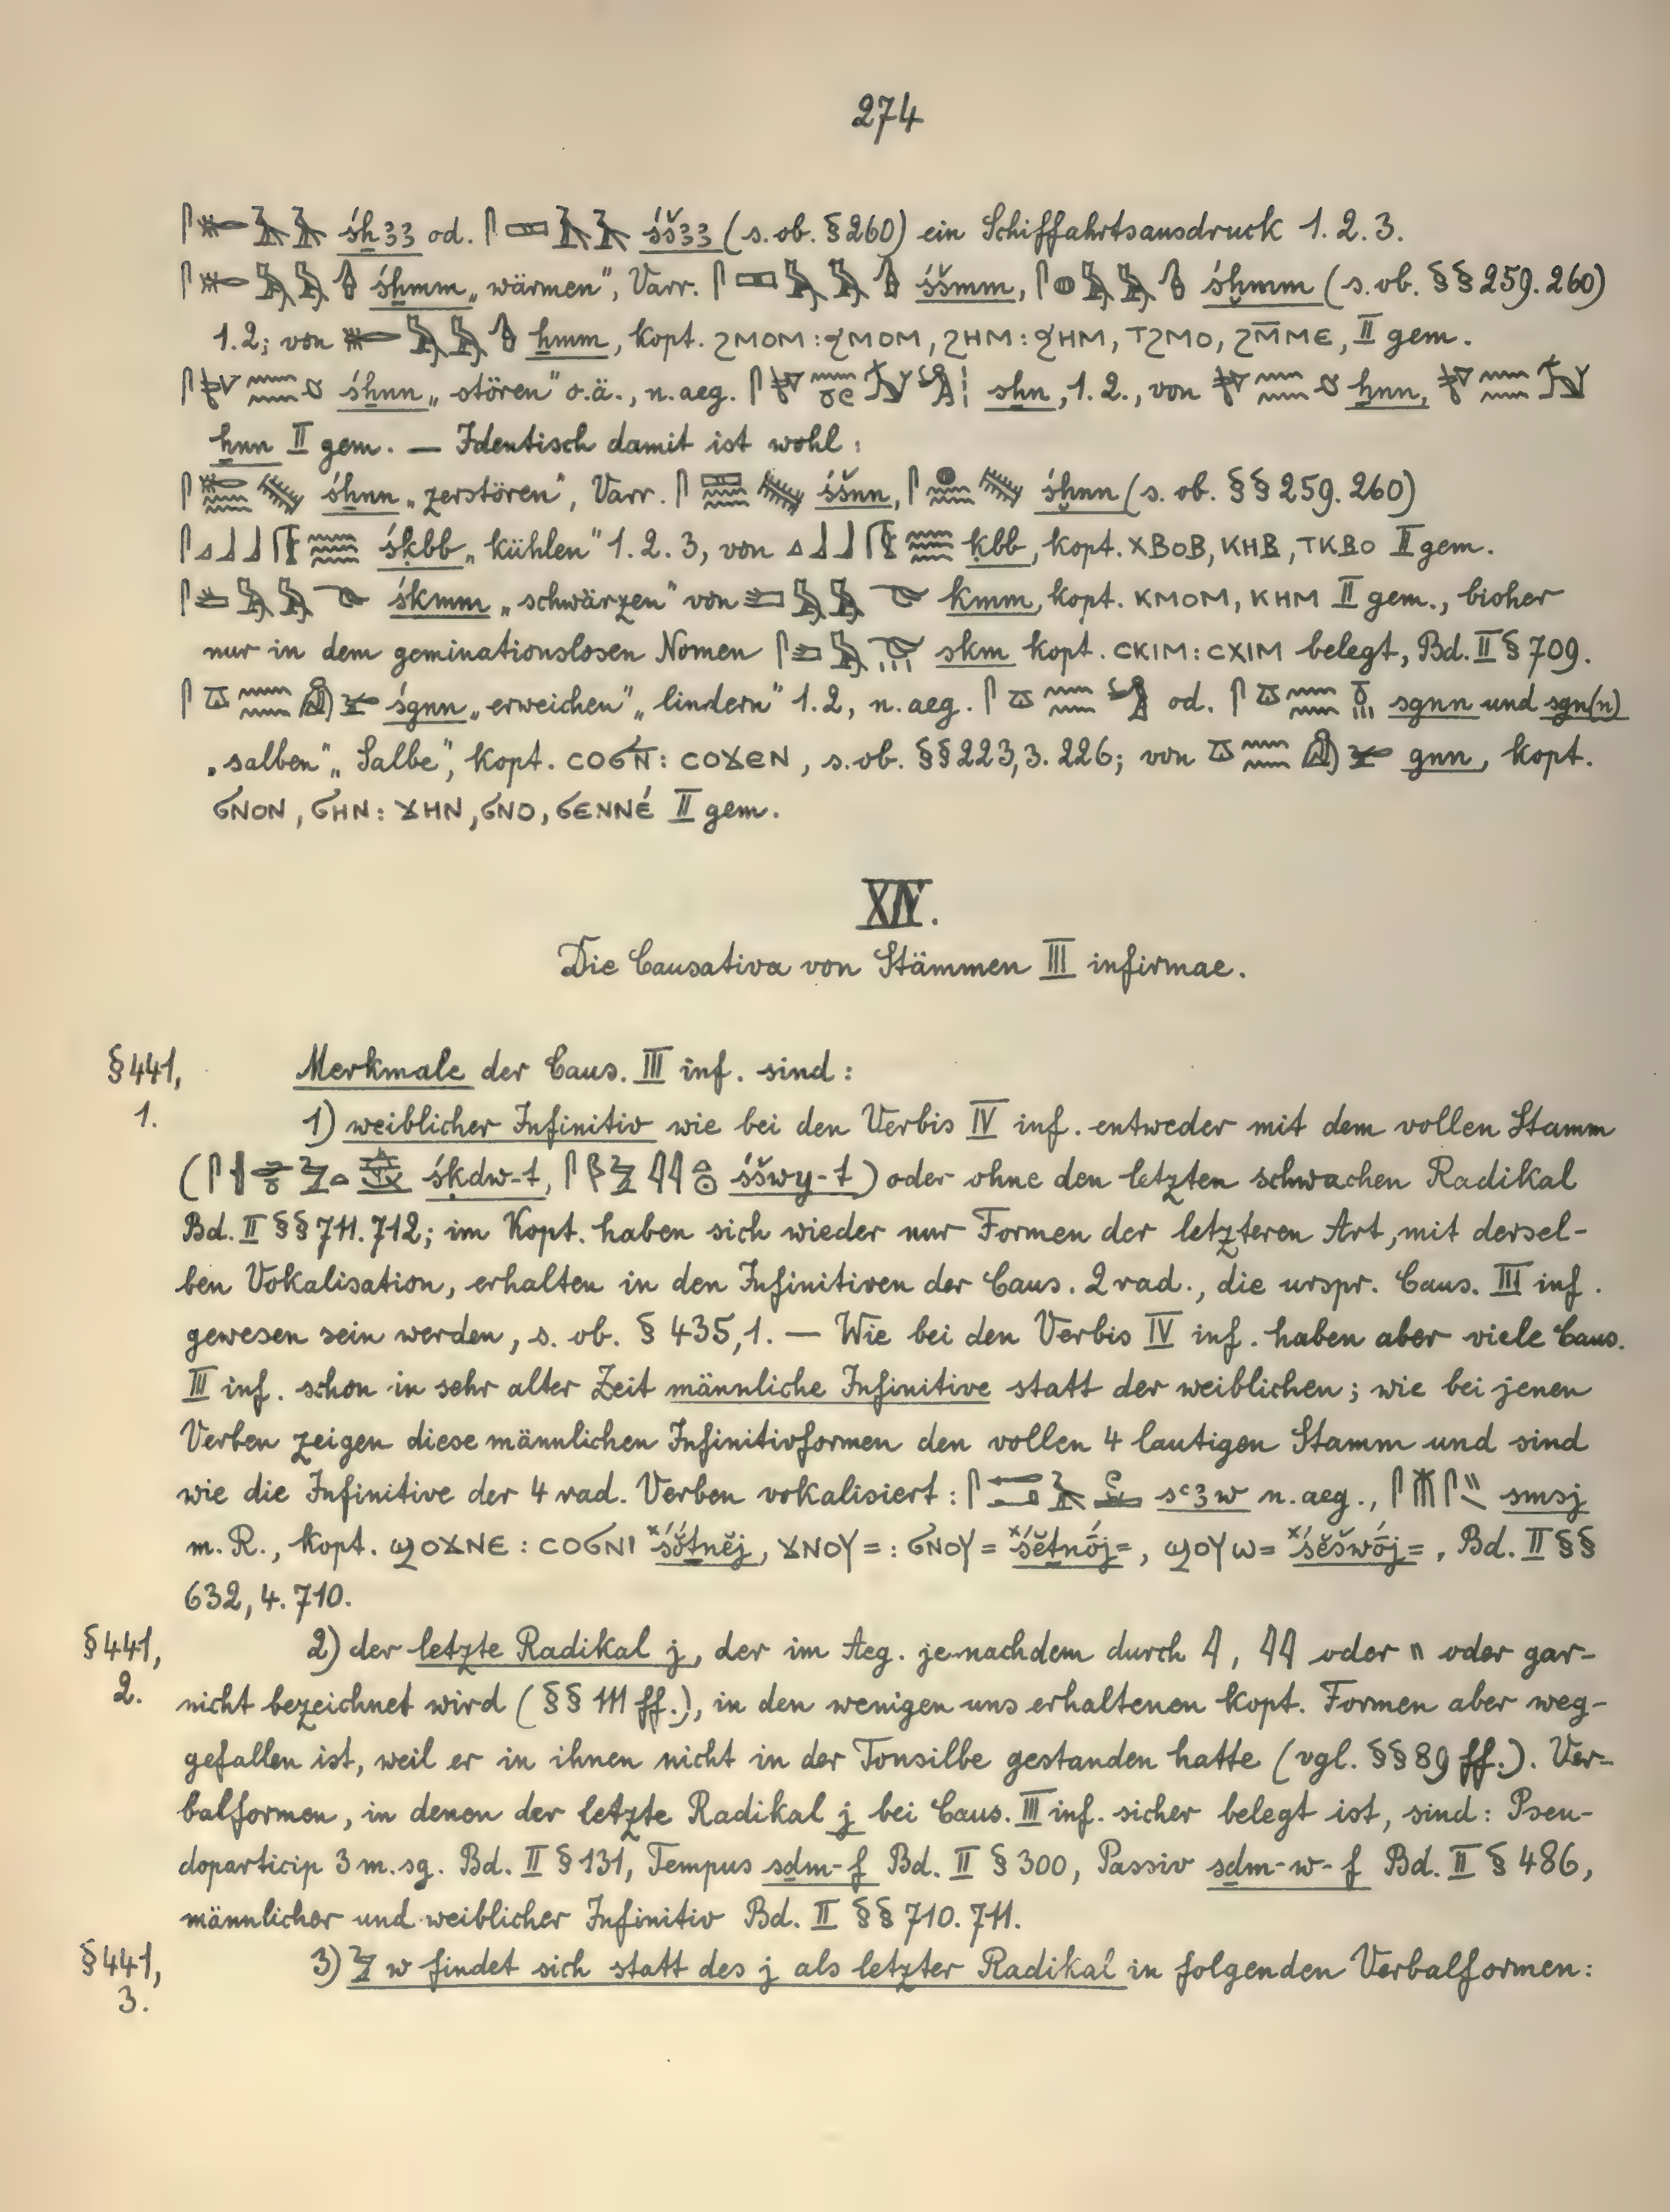 274
śẖꜣꜣ od. śšꜣꜣ (s. ob. § 260) ein Schiffahrtsausdruck 1. 2. 3.
śẖmm „wärmen“, Varr. śšmm, śḫmm (s. ob. §§ 259. 260)
1.2; von ẖmm, kopt. ϩⲙⲟⲙ : ϧⲙⲟⲙ, ϩⲏⲙ : ϧⲏⲙ, ⲧϩⲙⲟ, ϩⲙ̅ⲙⲉ, II gem.
śẖnn „stören“ o.ä., n. aeg. sẖn, 1. 2., von ẖnn,
ẖnn II gem. — Identisch damit ist wohl:
śẖnn „zerstören“, Varr. śšnn, śḫnn (s. ob. §§ 259. 260)
śḳbb „kühlen“ 1. 2. 3, von ḳbb, kopt. ⲭⲃⲟⲃ, ⲕⲏⲃ, ⲧⲕⲃⲟ II gem.
śkmm „schwärzen“ von kmm, kopt. ⲕⲙⲟⲙ, ⲕⲏⲙ II gem., bisher
nur in dem geminationslosen Nomen skm kopt. ⲥⲕⲓⲙ : ⲥⲭⲓⲙ belegt, Bd. II § 709.
śgnn „erweichen“ „lindern“ 1. 2, n. aeg. od. sgnn und sgn(n)
„salben“ „Salbe“, kopt. ⲥⲟϭⲛ̅ : ⲥⲟϫⲉⲛ, s. ob. §§ 223,3. 226; von gnn, kopt.
ϭⲛⲟⲛ, ϭⲏⲛ : ϫⲏⲛ, ϭⲛⲟ, ϭⲉⲛⲛⲉ́ II gem.
XIV.
Die Causativa von Stämmen III infirmae.
§ 441, Merkmale der Caus. III inf. sind:
1. 1) weiblicher Infinitiv wie bei den Verbis IV inf. entweder mit dem vollen Stamm
(śḳdw-t, śšwy-t) oder ohne den letzten schwachen Radikal
Bd. II §§ 711. 712; im Kopt. haben sich wieder nur Formen der letzteren Art, mit dersel-
ben Vokalisation, erhalten in den Infinitiven der Caus. 2 rad., die urspr. Caus. III inf.
gewesen sein werden, s. ob. § 435,1. — Wie bei den Verbis IV inf. haben aber viele Caus.
III inf. schon in sehr alter Zeit männliche Infinitive statt der weiblichen; wie bei jenen
Verben zeigen diese männlichen Infinitivformen den vollen 4 lautigen Stamm und sind
wie die Infinitive der 4 rad. Verben vokalisiert: sꜥꜣw n. aeg., smsj
m. R., kopt. ϣⲟϫⲛⲉ : ⲥⲟϭⲛⲓ ˣśŏ́ṯnĕj, ϫⲛⲟⲩ= : ϭⲛⲟⲩ= ˣśĕṯnṓj=, ϣⲟⲩⲱ= ˣśĕšwṓj=, Bd. II §§
632, 4. 710.
§ 441, 2) der letzte Radikal j, der im Aeg. je nachdem durch 𓇋, 𓇋𓇋 oder 𓏭 oder gar-
2. nicht bezeichnet wird (§§ 111 ff.), in den wenigen uns erhaltenen kopt. Formen aber weg-
gefallen ist, weil er in ihnen nicht in der Tonsilbe gestanden hatte (vgl. §§ 89 ff.). Ver-
balformen, in denen der letzte Radikal j bei Caus. III inf. sicher belegt ist, sind: Pseu-
doparticip 3 m. sg. Bd. II § 131, Tempus sḏm-f Bd. II § 300, Passiv sḏm-w-f Bd. II § 486,
männlicher und weiblicher Infinitiv Bd. II §§ 710. 711.
§ 441, 3) 𓅱 w findet sich statt des j als letzter Radikal in folgenden Verbalformen:
3.